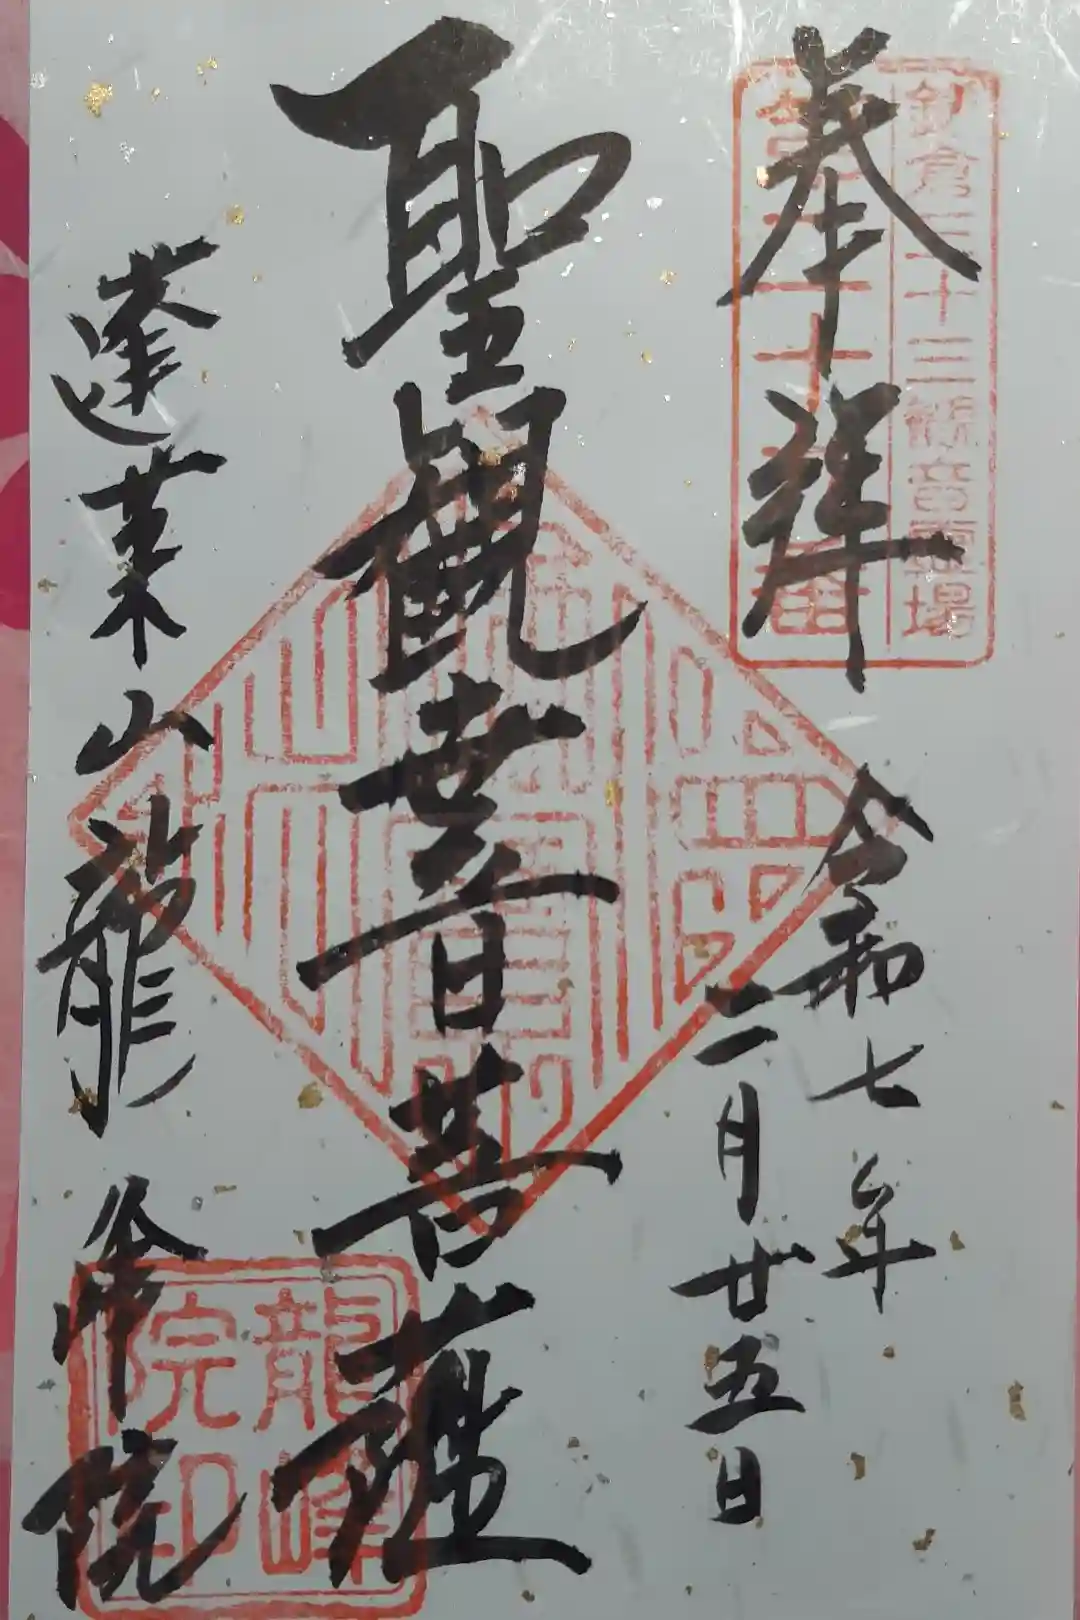 鎌倉三十三観音霊場
奉拝
令和七年
二月廿五日
聖観世音菩薩
蓬莱山龍峰院
龍峰院印